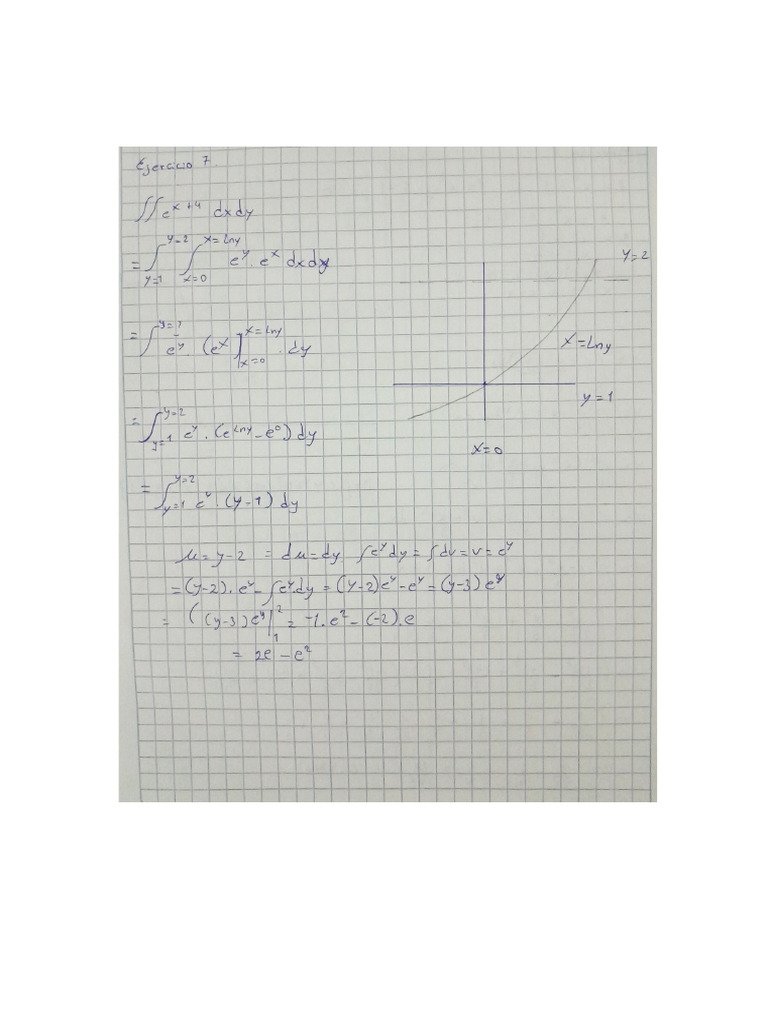 Ejercicio 7
∬ e^{x+y} dxdy
= ∫_{y=1}^{y=2} ∫_{x=0}^{x=Lny} e^y · e^x dxdy
= ∫^{y=1} e^y · (e^x |_{x=0}^{x=Lny} · dy
= ∫_{y=1}^{y=2} e^y · (e^{Lny} - e^0) dy
= ∫_{y=1}^{y=2} e^y · (y-1) dy
μ = y-2 = dμ = dy ∫e^y dy = ∫dv = v = e^y
= (y-2) · e^y - ∫e^y · dy = (y-2)e^y - e^y = (y-3) e^y
= ((y-3) e^y |_1^2 = -1 · e^2 - (-2) · e
= 2e - e^2
y=2
x=Lny
y=1
x=0